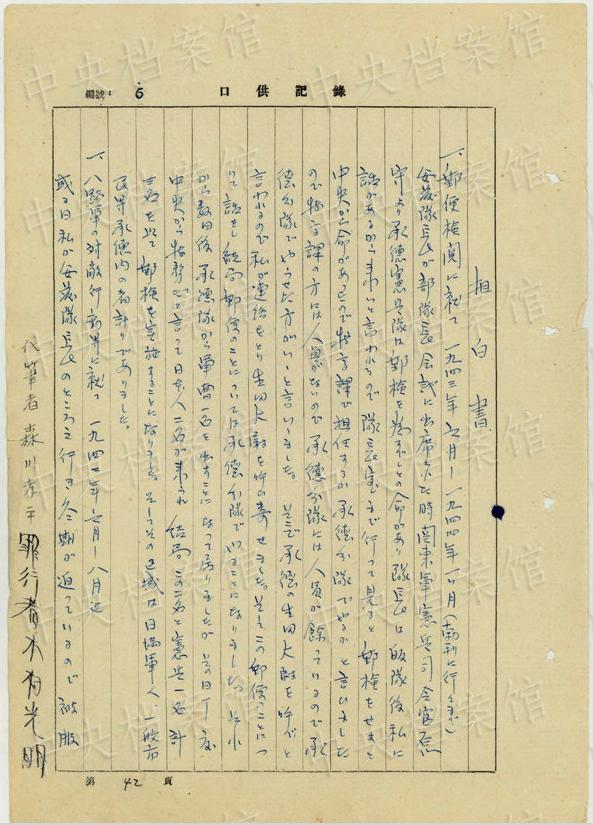 編號： 6
口供記錄
坦白書
一、郵便検閲に就て 一九四三年六月－一九四四年一ヶ月（南新に行く迄）
安藤隊長が部隊長会議に出席した時関東軍憲兵司令官
守より承徳憲兵隊は郵検を為すべしとの命があり隊長は皈隊後私に
話があるから来いと言われるので隊長室まで行って見ると郵検をせよと
中央から命があったので特高課で担任するか承徳分隊でやるかと言いました
ので特高課の方には人員がないので承徳分隊には人員が余っているので承
徳分隊でやらせた方がいいと言いました。そこで承徳の生田大尉を呼べと
言われるので私が連絡をとり生田大尉を呼び寄せました。そしてこの郵便のことにつ
いて話をし結局郵便のことについては承徳分隊でやることになりました。
から数日後承徳隊から軍曹一名を出すことになって居りましたが其の日丁度
中央から だと言って日本人二名が来られ結局この二名と憲兵一名計
三名を以て郵検を実施することになりました。そしてその区域は日満軍人、一般市
民等承徳内の者計りでありました。
一、八路軍の対敵行 に就て 一九四 年六月－八月迄
或る日私が安藤隊長のところえ行き冬期が迫っているので被服
代筆者 森川
罪行者 木村光明
第 42 頁
中央档案馆